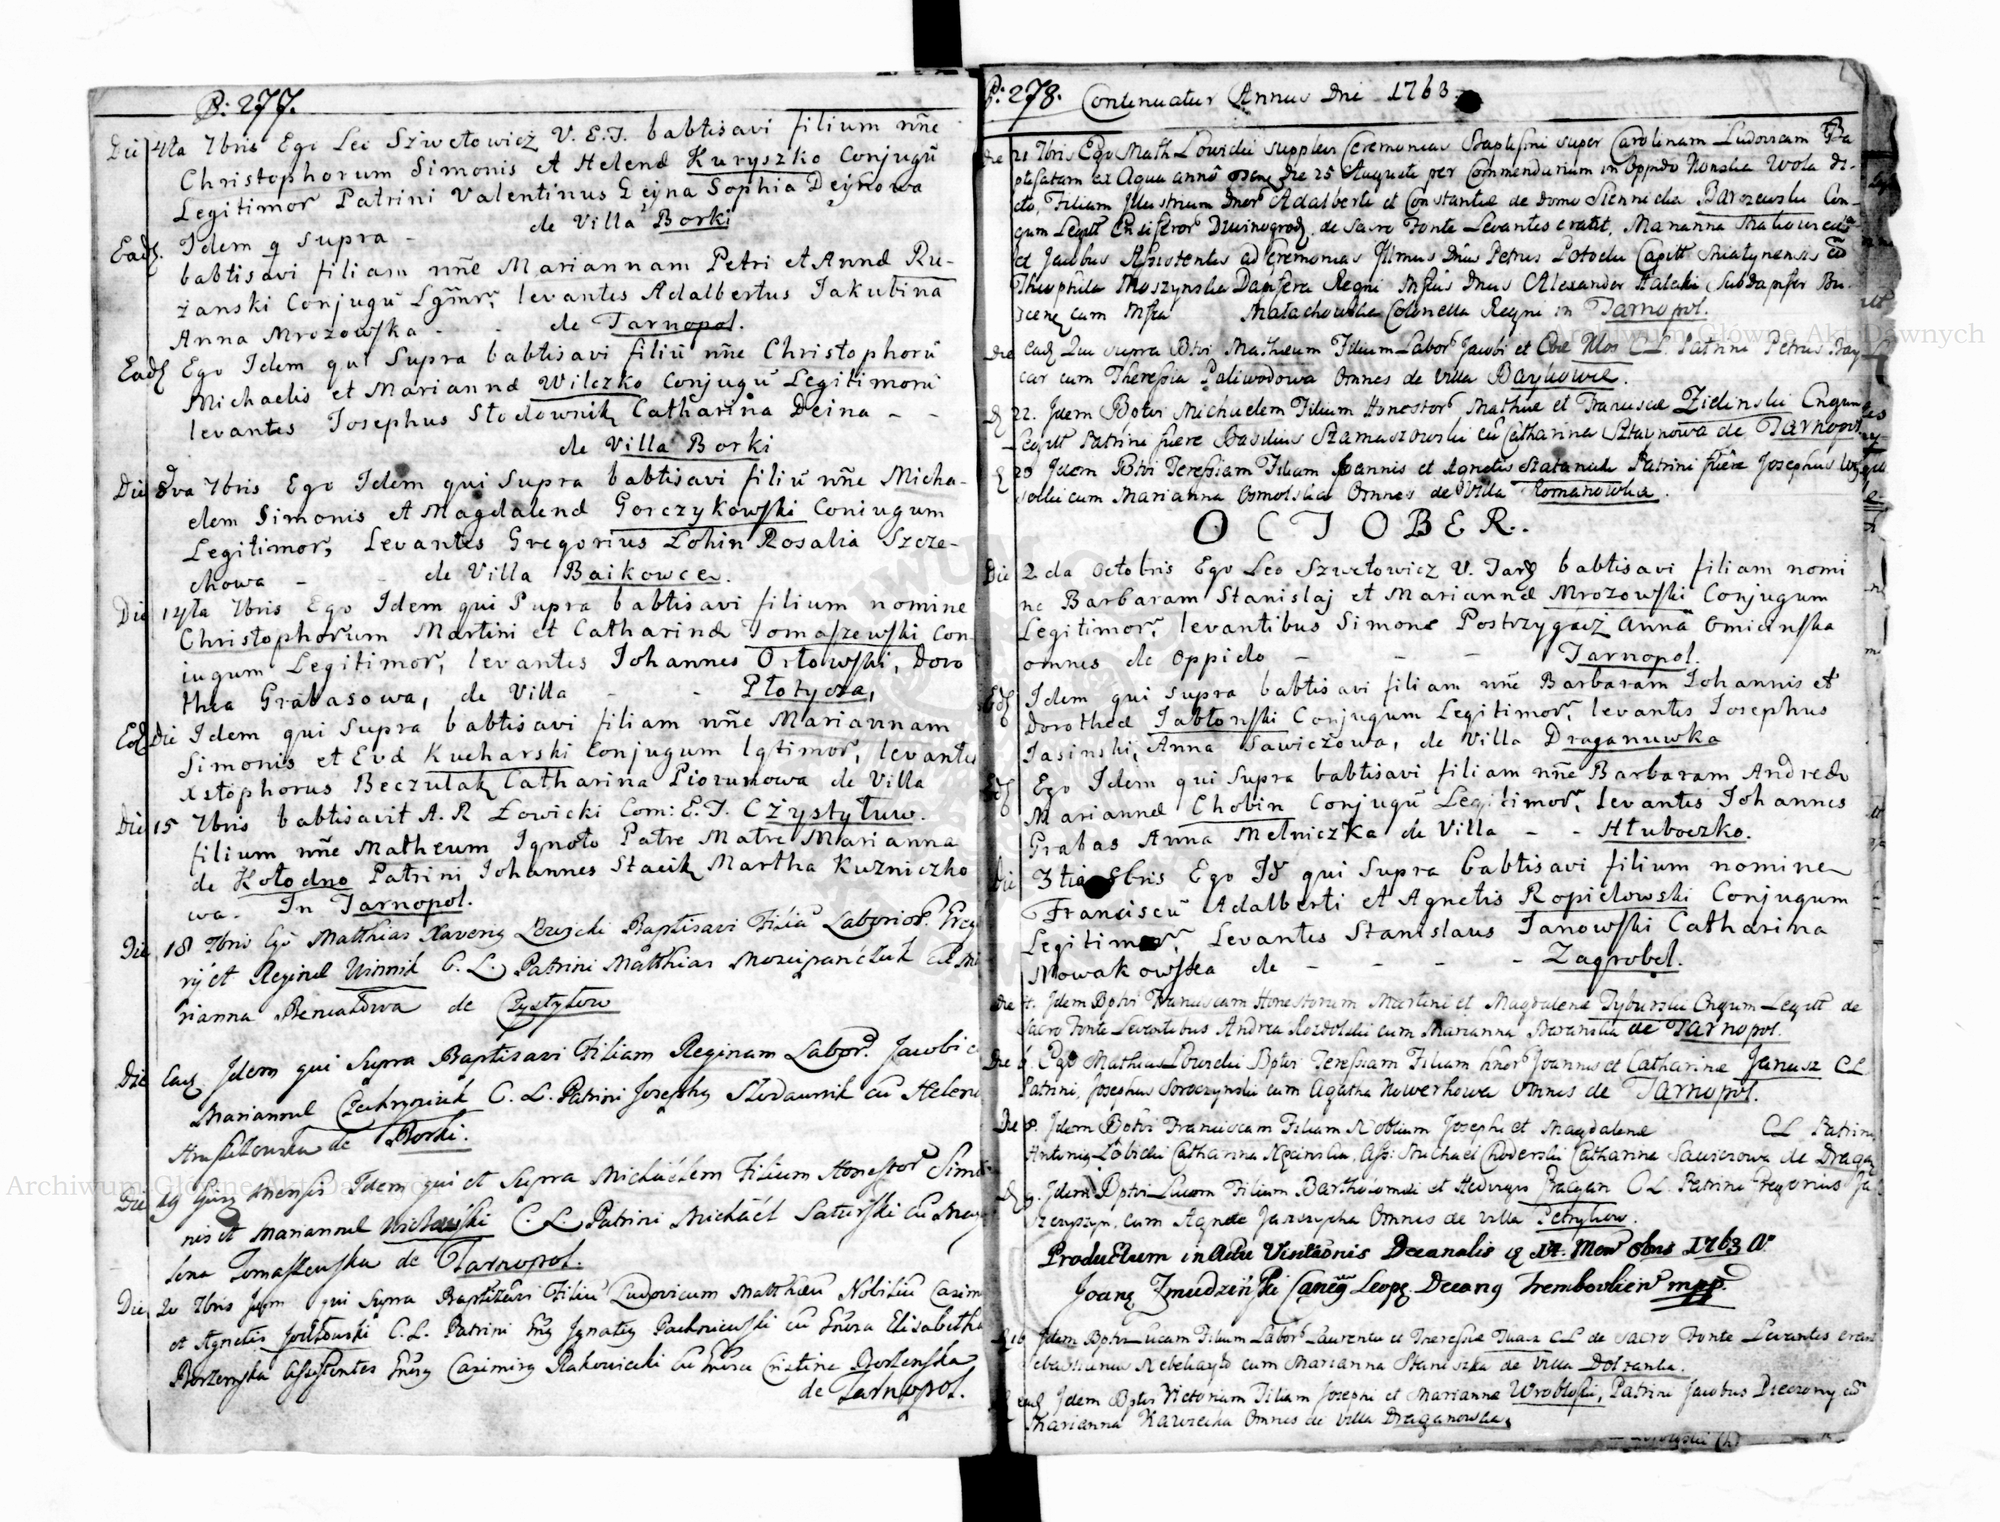 P: 277.
Die 4ta 7bris Ego Leo Szwetowicz V. E. T. babtisavi filium nñe
Christophorum Simonis et Helenæ Kuryszko Conjugũ
Legitimor Patrini Valentinus Deyna Sophia Deykowa
de Villa Borki
Eadę Idem q supra -
babtisavi filiam nñe Mariannam Petri et Annæ Ru-
żanski Conjugũ Lgtimr, levantes Adalbertus Jakubina
Anna Mrozowska - - de Tarnopol.
Eadę Ego Idem qui Supra babtisavi filiũ nñe Christophorũ
Michaelis et Mariannæ Wilczko Conjugũ Legitimorũ
levantes Josephus Slodownik Catharina Deina - -
de Villa Borki
Die 8va 7bris Ego Idem qui Supra babtisavi filiũ nñe Micha-
elem Simonis et Magdalenæ Gorczykowski Coniugum
Legitimor, Levantes Gregorius Łohin Rosalia Szcze-
chowa - - de Villa Baikowce.
Die 14ta 7bris Ego Idem qui Supra babtisavi filium nomine
Christophorum Martini et Catharinæ Tomaszewski Con-
iugum Legitimor, levantes Johannes Orłowski, Doro
thea Grabasowa, de Villa - - Płotycza,
Eod Die Idem qui Supra babtisavi filiam nñe Mariannam
Simonis et Evæ Kucharski Conjugum lgtimor, levantes
Xstophorus Beczulak Catharina Piorunowa de Villa
Die 15 7bris babtisavit A. R Łowicki Com: E. T. Czystyłuw.
filium nñe Matheum Ignoto Patre Matre Marianna
de Kołodno Patrini Johannes Stacik Martha Kuzniczko
wa. In Tarnopol.
Die 18 7bris Ego Matthias Xavery Baptisavi Filiũ Laborior. Greg
rij et Reginæ Winnik C. L. Patrini Matthias cũ Ma
rianna de Czystyłow
Die Eadę Idem qui Supra Baptisavi Filiam Reginam Labor. Jacobi e
Mariannæ C. L. Patrini Josephy Slodownik cũ Helena
de Borki.
Die 19 hujus mensis Idem qui et Supra Michaëlem Filium Honestor Simo
nis et Mariannæ C. L. Patrini Michaël Saturski cũ Mag
lena Tomaszewska de Tarnopol.
Die 20 7bris Idem qui Supra Baptisavi Filiũ Ludovicum Matthæũ Nobiliũ Casim
et Agnetis C. L. Patrini Ignaty cũ Elisabetha
Assistentes Casimiry Rakowiecki cũ Cristina
de Tarnopol.
P: 278. Continuatur Annus Dni 1763
Die 21 7bris Ego Math Łowicki supplevi Ceremonias Baptismi super Carolinam Ludovicam Ba
ptisatam ex Aqua anno die 25 Augusti per Commendarium in Oppido Wola di-
cto, Filiam Illustrium Dnor Adalberti et Constantiæ de domo Siennicka Barzewski Con-
gum Legitt Ensiferor Dzwinogrod, de Sacro Fonte Levantes erant, Marianna
et Jacobus Assistentes ad Ceremonias Illmus Dnus Petrus Potocki Capitt Sniatynensis cũ
Theophila Dapifera Regni Dnus Alexander Subdapifer Bu-
scene cum Małachowska Colonella Regni in Tarnopol.
Die Eadę Qui supra Btvi Matheum Filium Labor Jacobi et Evæ Kłos C. L. Patrini Petrus Bay
car cum Theressia Paliwodowa Omnes de Villa Baykowce.
D 22. Idem Bptvi Michaelem Filium Honestor Mathiæ et Franciscæ Zielinski Cngum
Legitt Patrini fuere Basilius Szamaszowski cũ Catharina de Tarnopol.
D 28 Idem Btvi Teressiam Filiam Joannis et Agnetis Patrini fuere Josephus
cum Marianna Omnes de Villa Romanowka.
OCTOBER.
Die 2da Octobris Ego Leo Szwetowicz V. Tarn babtisavi filiam nomi
ne Barbaram Stanislaj et Mariannæ Mrozowski Conjugum
Legitimor, levantibus Simone Postrzygacz Anna Omicinska
omnes de Oppido - - - Tarnopol.
Eadę Idem qui Supra babtisavi filiam nñe Barbaram Johannis et
Dorotheæ Jabłonski Conjugum Legitimor, levantes Josephus
Jasinski, Anna Sawiczowa, de Villa Draganuwka
Eadę Ego Idem qui Supra babtisavi filiam nñe Barbaram Andreæ
Mariannæ Chobin Conjugũ Legitimor, levantes Johannes
Grabas Anna Melniczka de Villa - - Hłuboczko.
Die 3tia 8bris Ego Id qui Supra babtisavi filium nomine
Franciscũ Adalberti et Agnetis Ropielowski Conjugum
Legitimor, Levantes Stanislaus Janowski Catharina
Nowakowska de - - - - Zagrobel.
Die 4. Idem Bptvi Franciscam Honestorum Martini et Magdalenæ Tyburski Cngum Legitt de
Sacro Fonte Levantibus Andrea Rozdolski cum Marianna Baranska de Tarnopol.
Die 6. Ego Mathias Łowicki Bptvi Teressiam Filiam hnor Joannis et Catharinæ Janusz CL
Patrini, Josephus cum Agatha Omnes de Tarnopol.
Die 8. Idem Bptvi Franciscam Filiam Nobilium Josephi et Magdalenæ CL Patrini
Antonius Łobicki Catharina Assi: Michael Choderski Catharina Sawiczowa de Dragan
D 9. Idem Bptvi Lucam Filium Bartholomæi et Hedvigis C. L. Patrini Gregorius Ja
szczyszyn, cum Agnete Omnes de villa Petrykow.
Productum in Actu Visitaõnis Decanalis 14. Men 8bris 1763 A.
Joanę Zmudzinski Canęus Leopę. Decanę Trembovlien mpp.
D 16 Idem Bptvi Lucam Filium Labor Laurenti et Theressiæ CL de Sacro Fonte Levantes erant
Sebastianus cum Marianna Staniszka de Villa Dołzanka.
D eadę Idem Bptvi Victoriam Filiam Josephi et Mariannæ Wroblski, Patrini Jacobus cũ
Marianna Kawecka Omnes de Villa Draganowka.
Archiwum Główne Akt Dawnych
Archiwum Główne Akt Dawnych